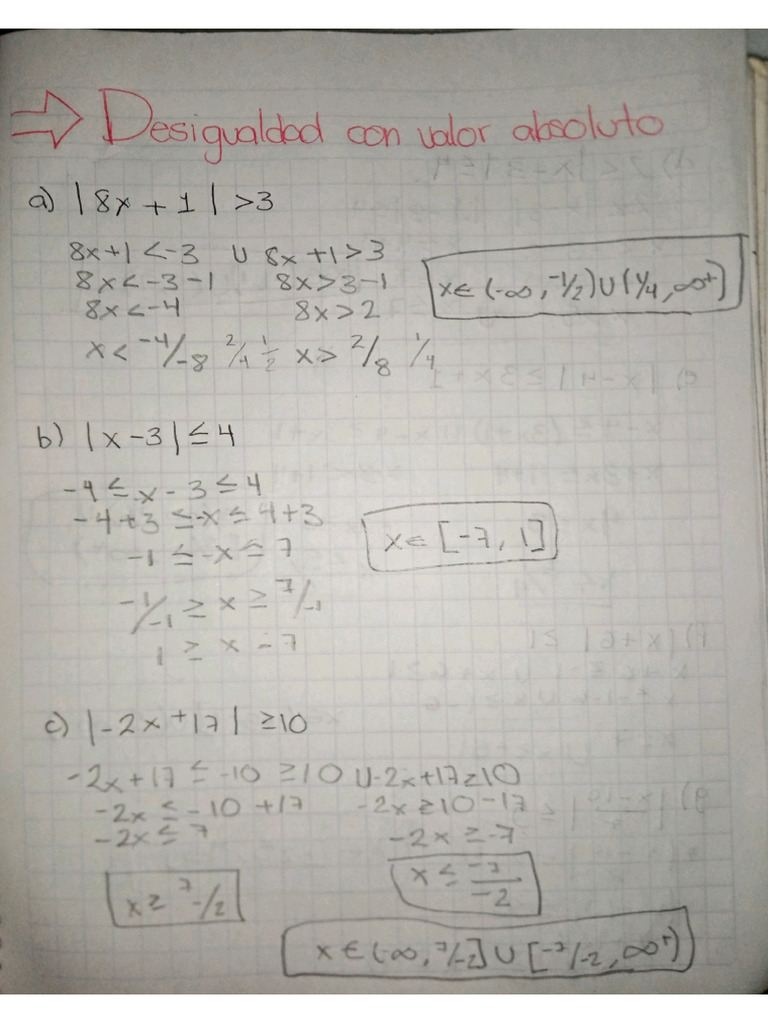 ⇒ Desigualdad con valor absoluto
a) |8x + 1| >3
8x+1 <-3 ∪ 8x +1>3
8x<-3-1 8x>3-1
8x<-4 8x>2
x∈ (-∞, -1/2) ∪ (1/4, ∞⁺)
x< -4/-8 2/4 1/2 x> 2/8 1/4
b) |x-3| ≤ 4
-4 ≤ -x - 3 ≤ 4
-4+3 ≤ -x ≤ 4+3
-1 ≤ -x ≤ 7
x∈ [-7, 1]
-1/-1 ≥ x ≥ 7/-1
1 ≥ x - 7
c) |-2x +17| ≥10
-2x+17 ≤ -10 ≥10 ∪ -2x+17≥10
-2x ≤ -10 +17 -2x ≥10-17
-2x ≤ 7 -2x ≥ -7
x≥ 7/-2 x ≤ -7/-2
x ∈ (-∞, 7/-2] ∪ [-7/-2, ∞⁺)